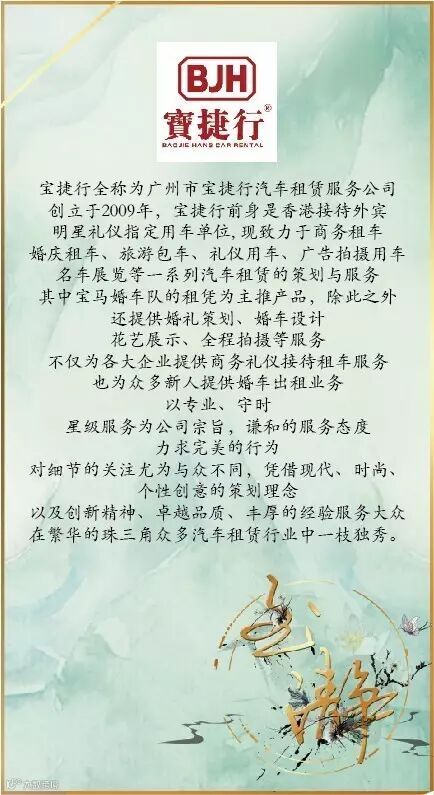 BJH
寶捷行®
BAOJIE HANG CAR RENTAL
宝捷行全称为广州市宝捷行汽车租赁服务公司
创立于2009年，宝捷行前身是香港接待外宾
明星礼仪指定用车单位,现致力于商务租车
婚庆租车、旅游包车、礼仪用车、广告拍摄用车
名车展览等一系列汽车租赁的策划与服务
其中宝马婚车队的租凭为主推产品，除此之外
还提供婚礼策划、婚车设计
花艺展示、全程拍摄等服务
不仅为各大企业提供商务礼仪接待租车服务
也为众多新人提供婚车出租业务
以专业、守时
星级服务为公司宗旨，谦和的服务态度
力求完美的行为
对细节的关注尤为与众不同，凭借现代、时尚、
个性创意的策划理念
以及创新精神、卓越品质、丰厚的经验服务大众
在繁华的珠三角众多汽车租赁行业中一枝独秀。